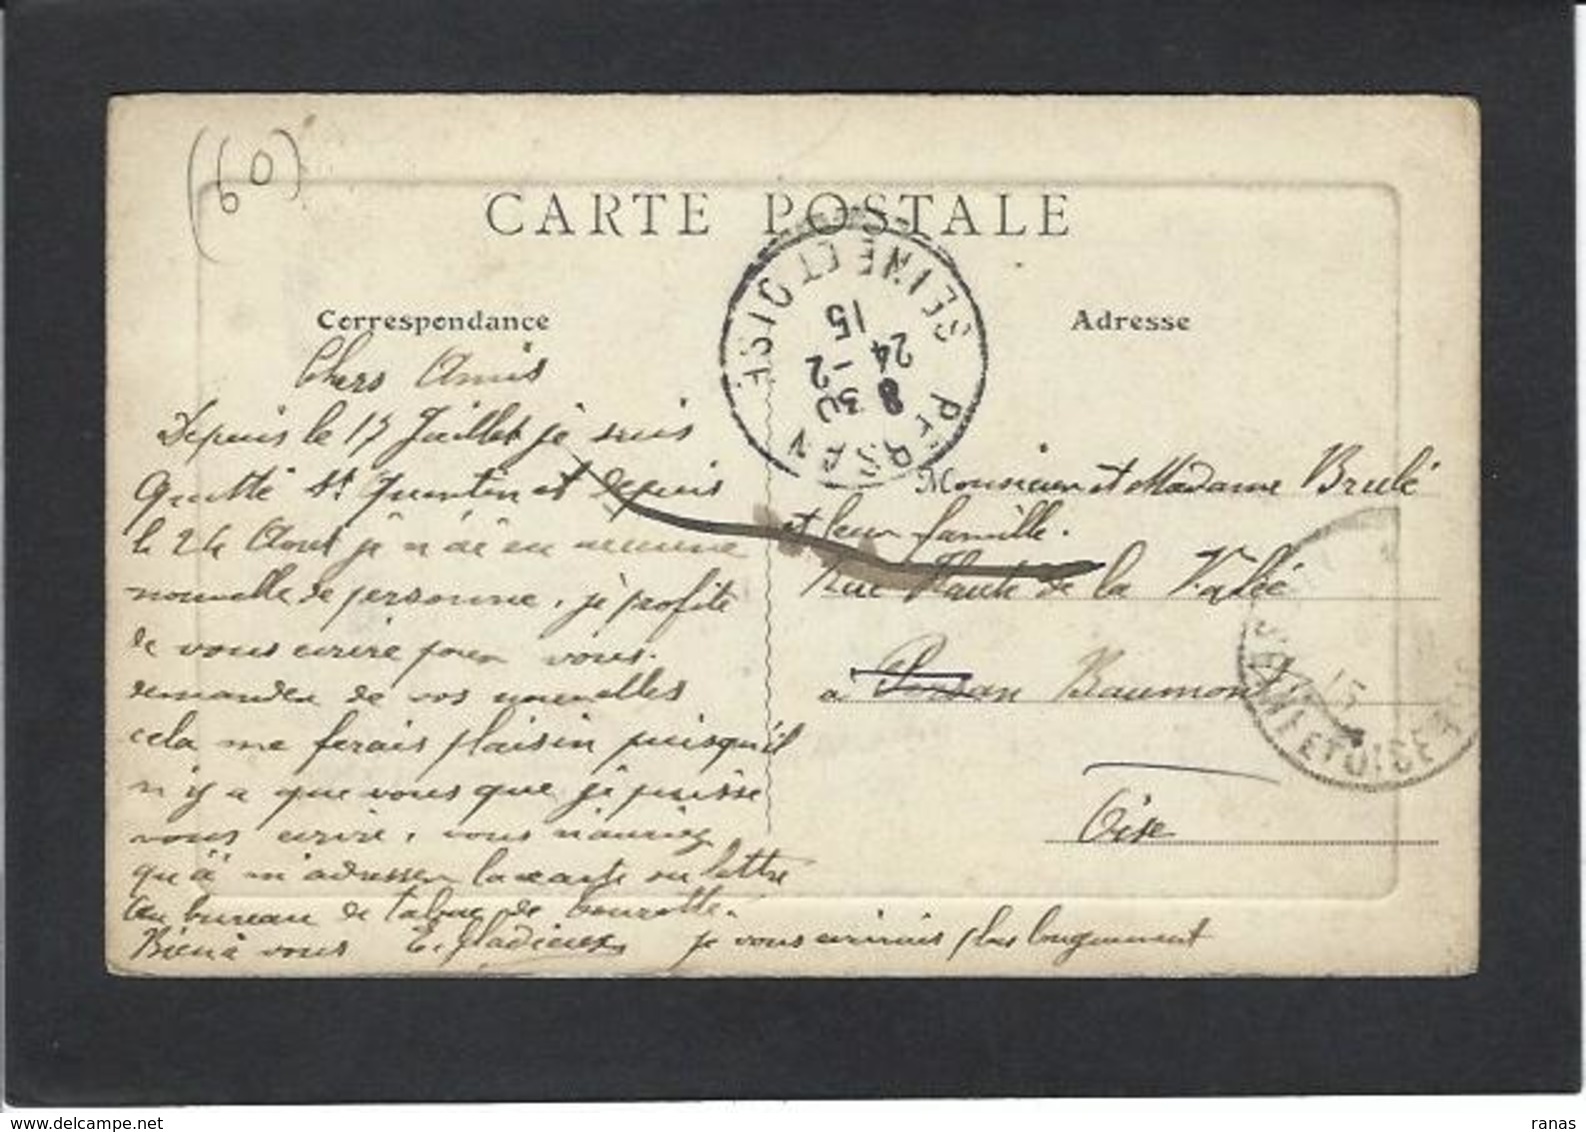 (60)
CARTE POSTALE
Correspondance
Adresse
PERSAN
SEINE ET OISE
8 30
24 - 2
15
Chers Amis
Depuis le 17 Juillet je suis
Quitté St Quentin et depuis
le 24 Aout je n'ai eu aucune
nouvelle de personne, je profite
de vous écrire pour vous
demander de vos nouvelles
cela me ferais plaisir puisqu'il
n'y a que vous que je puisse
vous écrire, vous n'auriez
qu'à m'adresser la carte ou lettre
au bureau de tabac de
Bien à vous E. je vous écrirais plus longuement
Monsieur et Madame Brulé
et leur famille.
Rue Haute de la Valée
a Persan Beaumont
Oise
SEINE ET OISE
15
www.delcampe.net
ranas